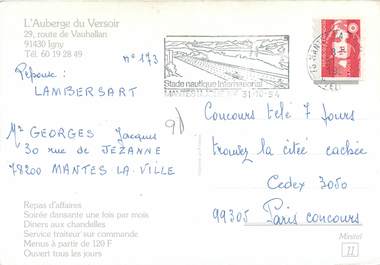 L'Auberge du Versoir
29, route de Vauhallan
91430 Igny
Tél. 60 19 28 49
n° 173
Réponse :
LAMBERSART
Stade nautique International
31-10-94
Mr GEORGES Jacques
30 rue de JEZANNE
78200 MANTES LA VILLE
Concours télé 7 jours
trouvez la citée cachée
Cedex 3050
99305 Paris concours
Repas d'affaires
Soirée dansante une fois par mois
Diners aux chandelles
Service traiteur sur commande
Menus à partir de 120 F
Ouvert tous les jours
Minitel
11